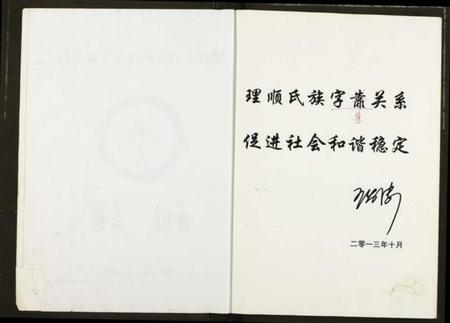 理顺氏族字靠关系
促进社会和谐稳定
二零一三年十月